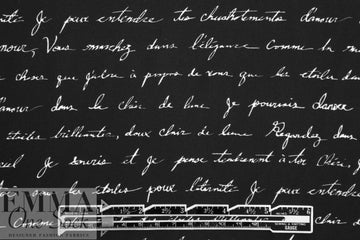 Je peux entendre tes chuchotements d'amour
amour, Vous marchez dans l'élégance comme la nu
choses que j'adore à propos de vous que les étoiles dans
d'amour dans le clair de lune Je pourrais danser
étoiles brillantes, doux clair de lune Regardez dans
Je souris et je pense tendrement à toi Chéri, j
les étoiles pour l'éternité Je peux entendre
Comme
EMMA
DESIGNER FASHION FABRICS
GAUGE